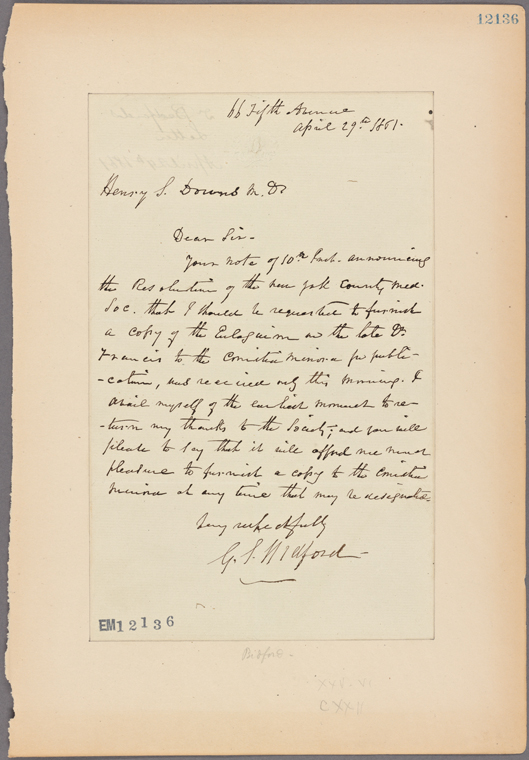 12136
66 Fifth Avenue
April 29th 1861.
Henry S. Downs M. D.
Dear Sir-
Your note of 10th Inst. announcing
the Resolution of the New York County Med.
Soc. that I should be requested to furnish
a copy of the Eulogium on the late Dr.
Francis to the Comitia Minora for publi-
-cation, was received only this morning. I
avail myself of the earliest moment to re-
-turn my thanks to the Society; and you will
please to say that it will afford me much
pleasure to furnish a copy to the Comitia
Minora at any time that may be designated-
Very respectfully
G. S. Bedford
EM12136
Bedford.
CXXII